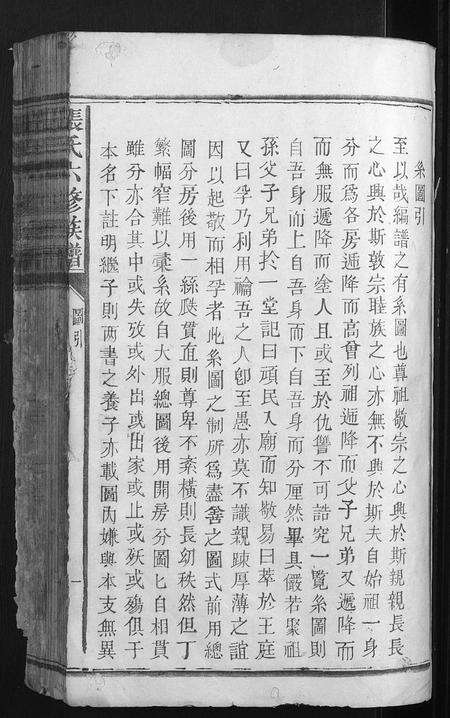 系圖引
至以哉編譜之有系圖也尊祖敬宗之心興於斯親親長長
之心興於斯敦宗睦族之心亦無不興於斯夫自始祖一身
分而爲各房遞降而高曾列祖遞降而父子兄弟又遞降而
而無服遞降而塗人且或至於仇讐不可詰究一覽系圖則
自吾身而上自吾身而下自吾身而分厘然畢具儼若聚祖
孫父子兄弟於一堂記曰頑民入廟而知敬易曰萃於王庭
又曰孚乃利用禴吾之人卽至愚亦莫不識親踈厚薄之誼
因以起敬而相孚者此系圖之制所爲盡善之圖式前用總
圖分房後用一絲貫直則尊卑不紊橫則長幼秩然但丁
繁幅窄難以彚系故自大服總圖後用開房分圖匕自相貫
雖分亦合其中或失攷或外出或出家或止或殀或殤俱于
本名下註明繼子則两書之養子亦載圖内嫌與本支無異
張氏六修族譜
圖引
一